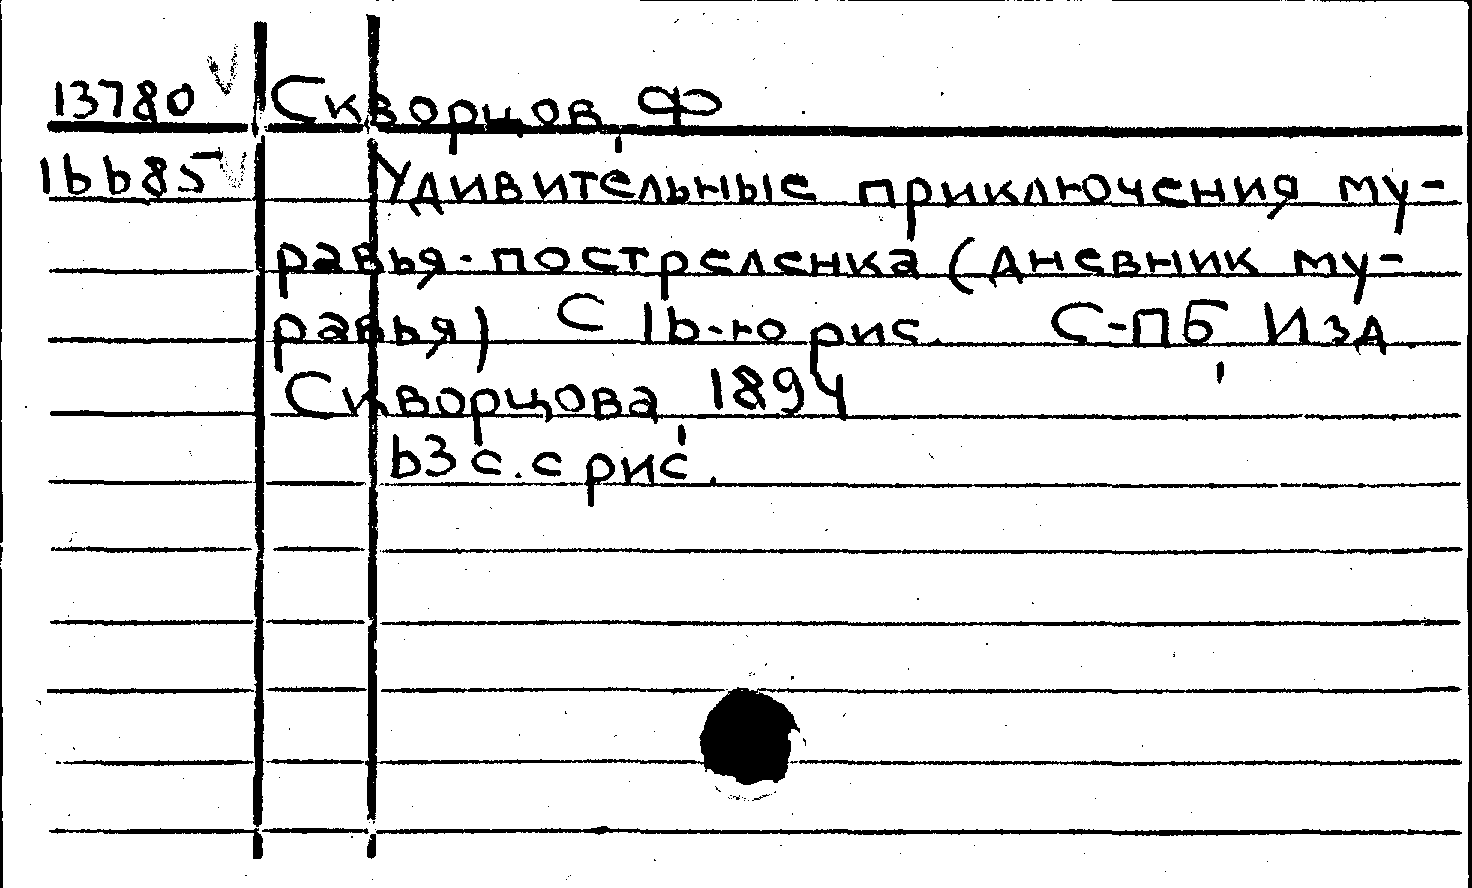 13780 V Скворцов, Ф
16685 V Удивительные приключения му-
равья-постреленка (дневник му-
равья) С 16-ю рис. С-ПБ, Изд.
Скворцова, 1894
63 с. с рис.